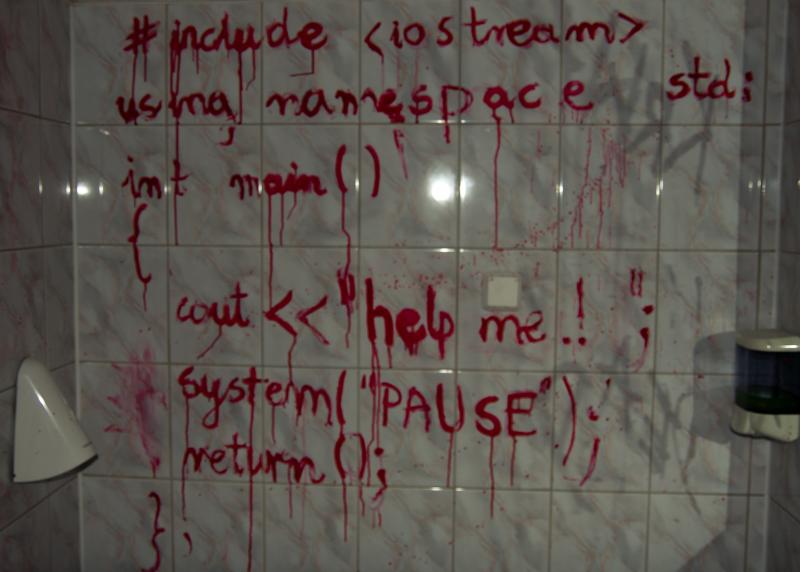 #include <iostream>
using namespace std;
int main()
{
cout << "help me.! ";
system("PAUSE");
return();
};